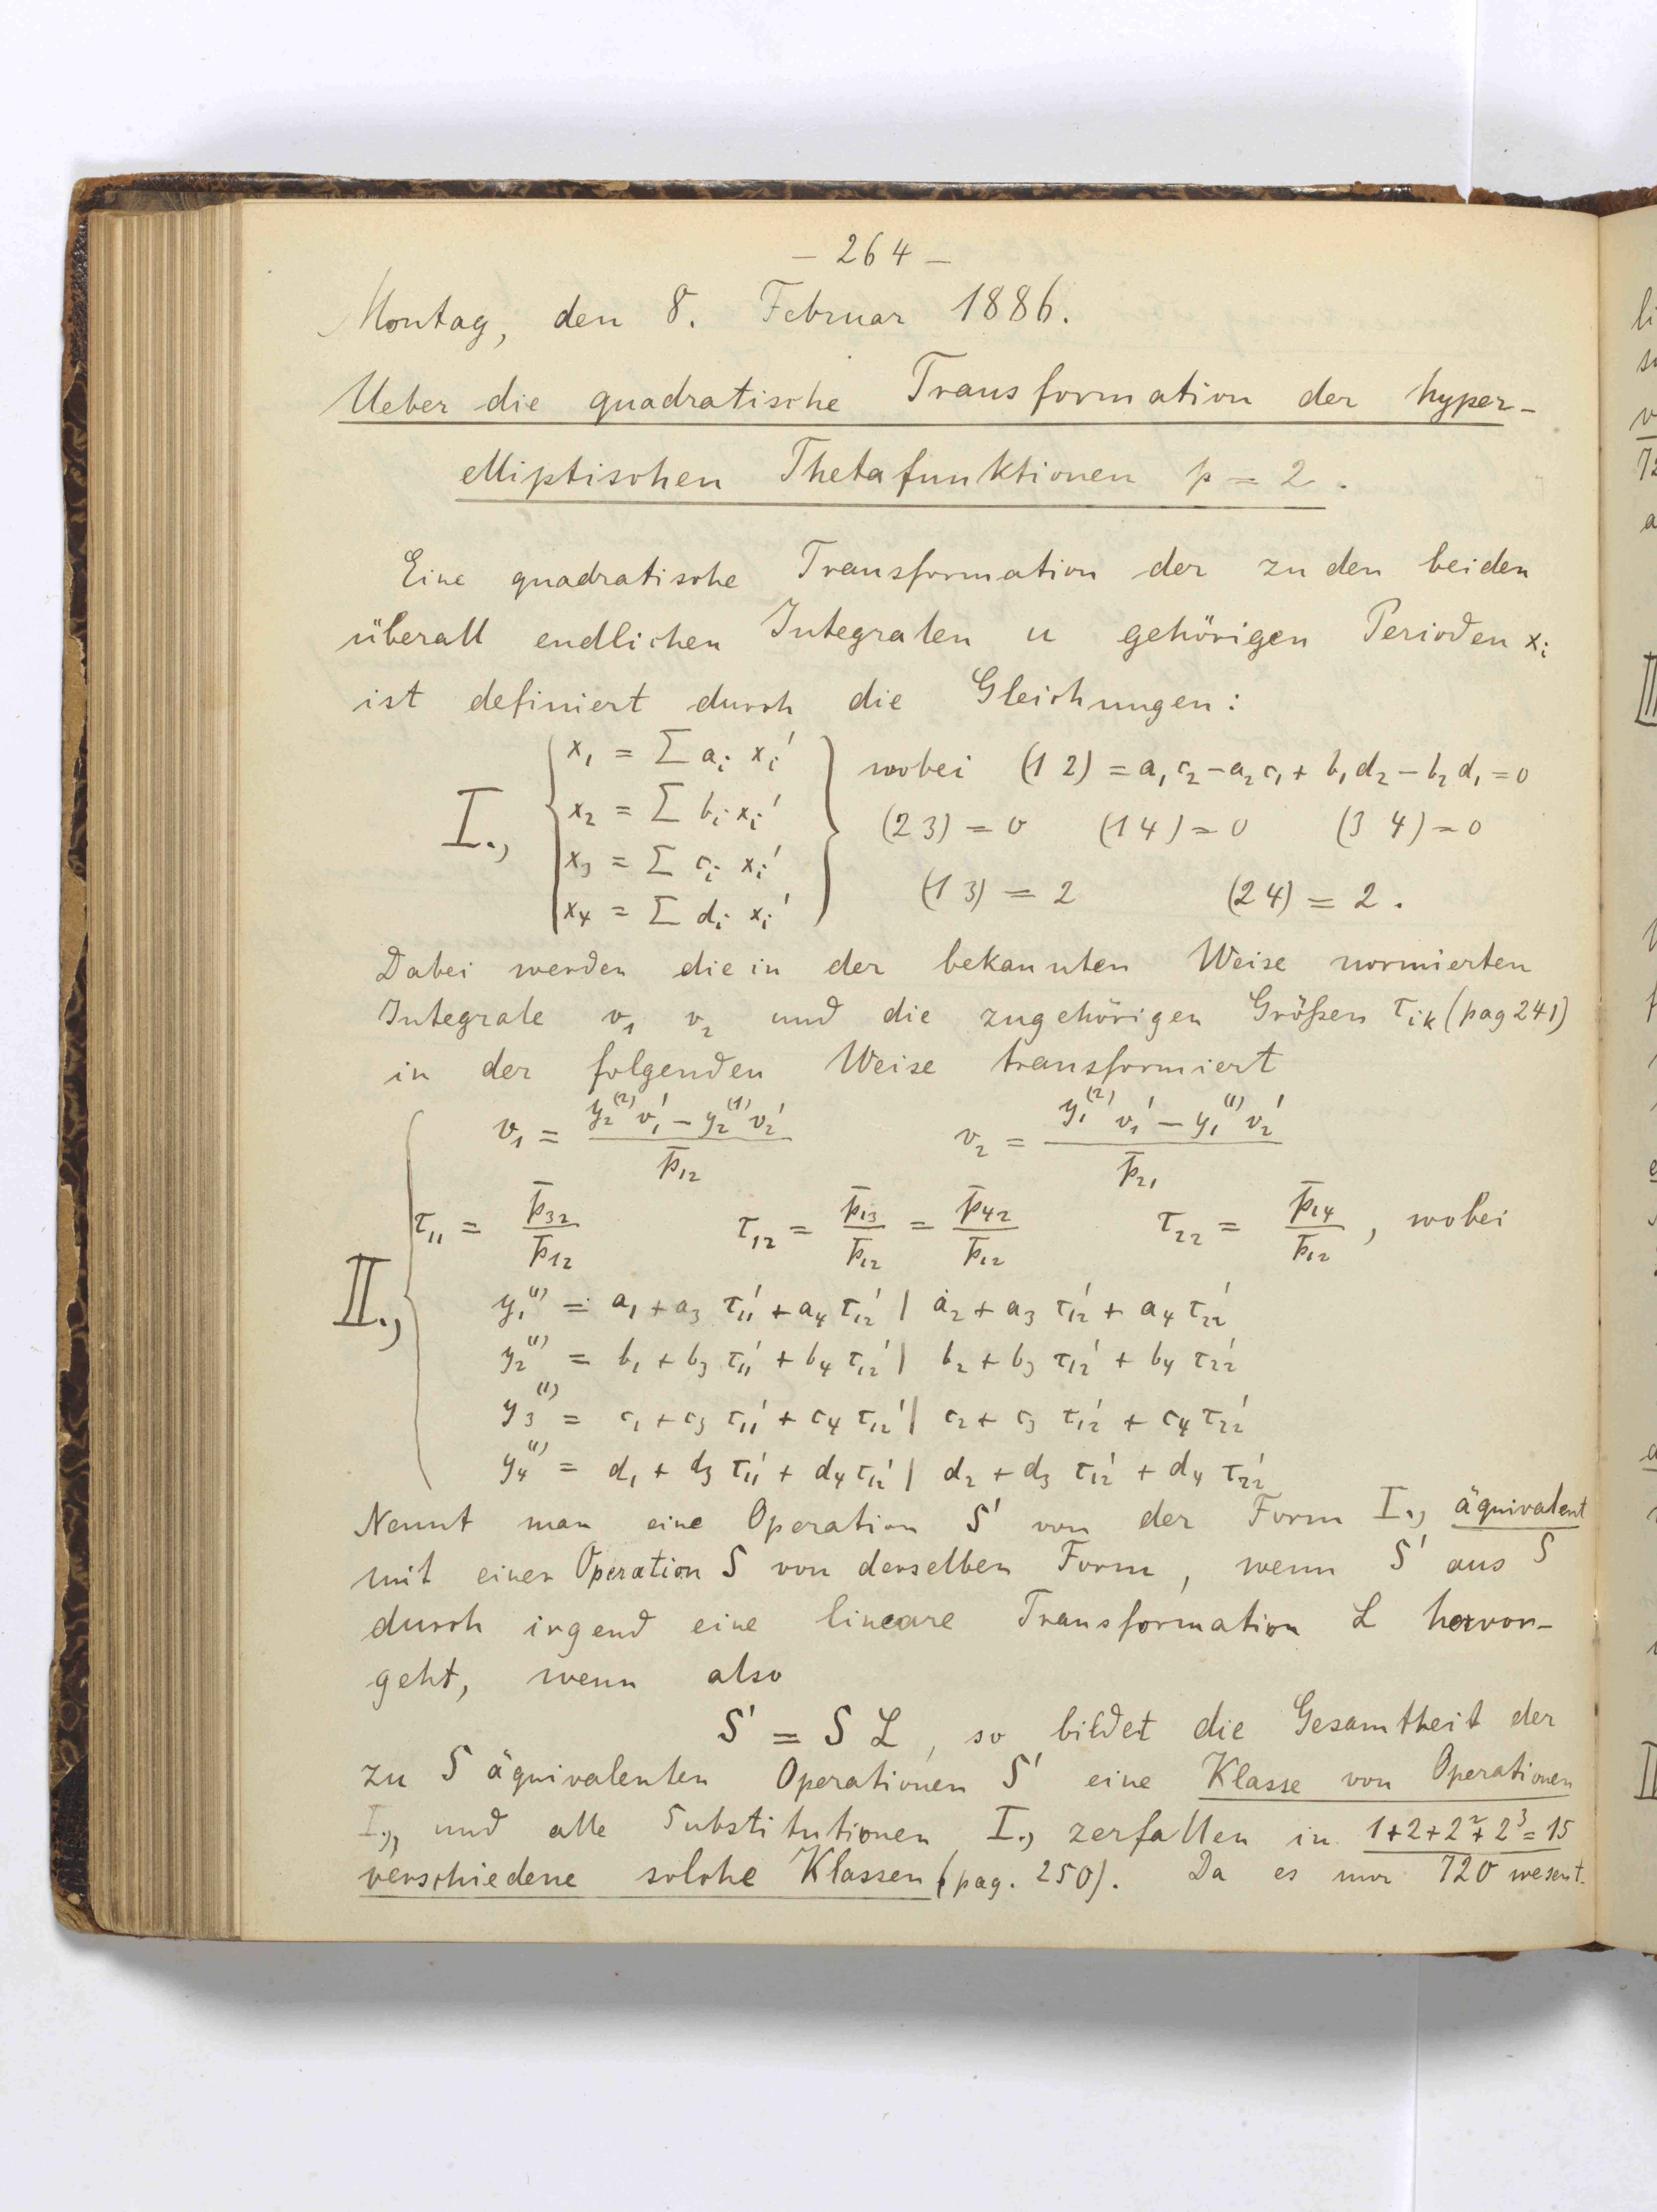 – 264 –
Montag, den 8. Februar 1886.
Ueber die quadratische Transformation der hyper-
elliptischen Thetafunktionen p = 2.
Eine quadratische Transformation der zu den beiden
überall endlichen Integralen u gehörigen Perioden xᵢ
ist definiert durch die Gleichungen:
I., x₁ = Σ aᵢ xᵢ' wobei (1 2) = a₁c₂ – a₂c₁ + b₁d₂ – b₂d₁ = 0
x₂ = Σ bᵢ xᵢ' (2 3) = 0 (1 4) = 0 (3 4) = 0
x₃ = Σ cᵢ xᵢ'
x₄ = Σ dᵢ xᵢ' (1 3) = 2 (2 4) = 2.
Dabei werden die in der bekannten Weise normierten
Integrale v₁ v₂ und die zugehörigen Größen τᵢₖ (pag 241)
in der folgenden Weise transformiert
II., v₁ = (y₂⁽²⁾ v₁' – y₂⁽¹⁾ v₂') / p̄₁₂ v₂ = (y₁⁽²⁾ v₁' – y₁⁽¹⁾ v₂') / p̄₂₁
τ₁₁ = p̄₃₂ / p̄₁₂ τ₁₂ = p̄₁₃ / p̄₁₂ = p̄₄₂ / p̄₁₂ τ₂₂ = p̄₁₄ / p̄₁₂, wobei
y₁⁽¹⁾ = a₁ + a₃ τ₁₁' + a₄ τ₁₂' | a₂ + a₃ τ₁₂' + a₄ τ₂₂'
y₂⁽¹⁾ = b₁ + b₃ τ₁₁' + b₄ τ₁₂' | b₂ + b₃ τ₁₂' + b₄ τ₂₂'
y₃⁽¹⁾ = c₁ + c₃ τ₁₁' + c₄ τ₁₂' | c₂ + c₃ τ₁₂' + c₄ τ₂₂'
y₄⁽¹⁾ = d₁ + d₃ τ₁₁' + d₄ τ₁₂' | d₂ + d₃ τ₁₂' + d₄ τ₂₂'
Nennt man eine Operation S' von der Form I., äquivalent
mit einer Operation S von derselben Form, wenn S' aus S
durch irgend eine lineare Transformation L hervor-
geht, wenn also
S' = S L, so bildet die Gesamtheit der
zu S äquivalenten Operationen S' eine Klasse von Operationen
I., und alle Substitutionen I., zerfallen in 1+2+2²+2³=15
verschiedene solche Klassen (pag. 250). Da es nur 720 wesent-